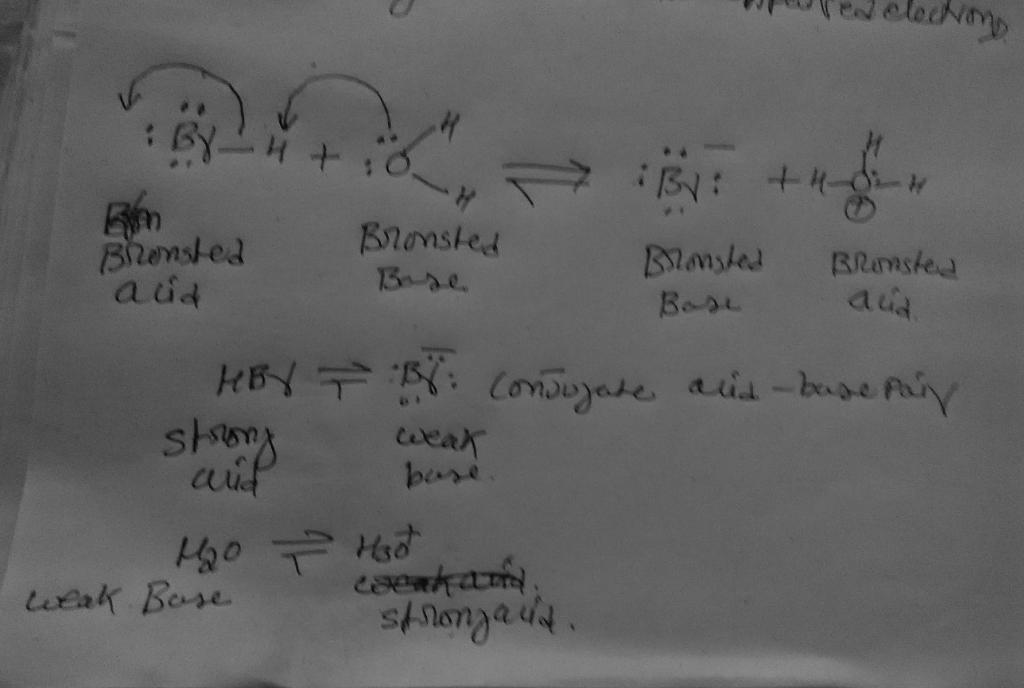 electrons
:Br—H + :O H H ⇌ :Br:⁻ + H—O—H H ⊕
Bronsted acid Bronsted Base Bronsted Base Bronsted acid
HBr ⇌ :Br:⁻ Conjugate acid-base pair
strong acid weak base.
H2O ⇌ H3O+
weak Base
strong acid.